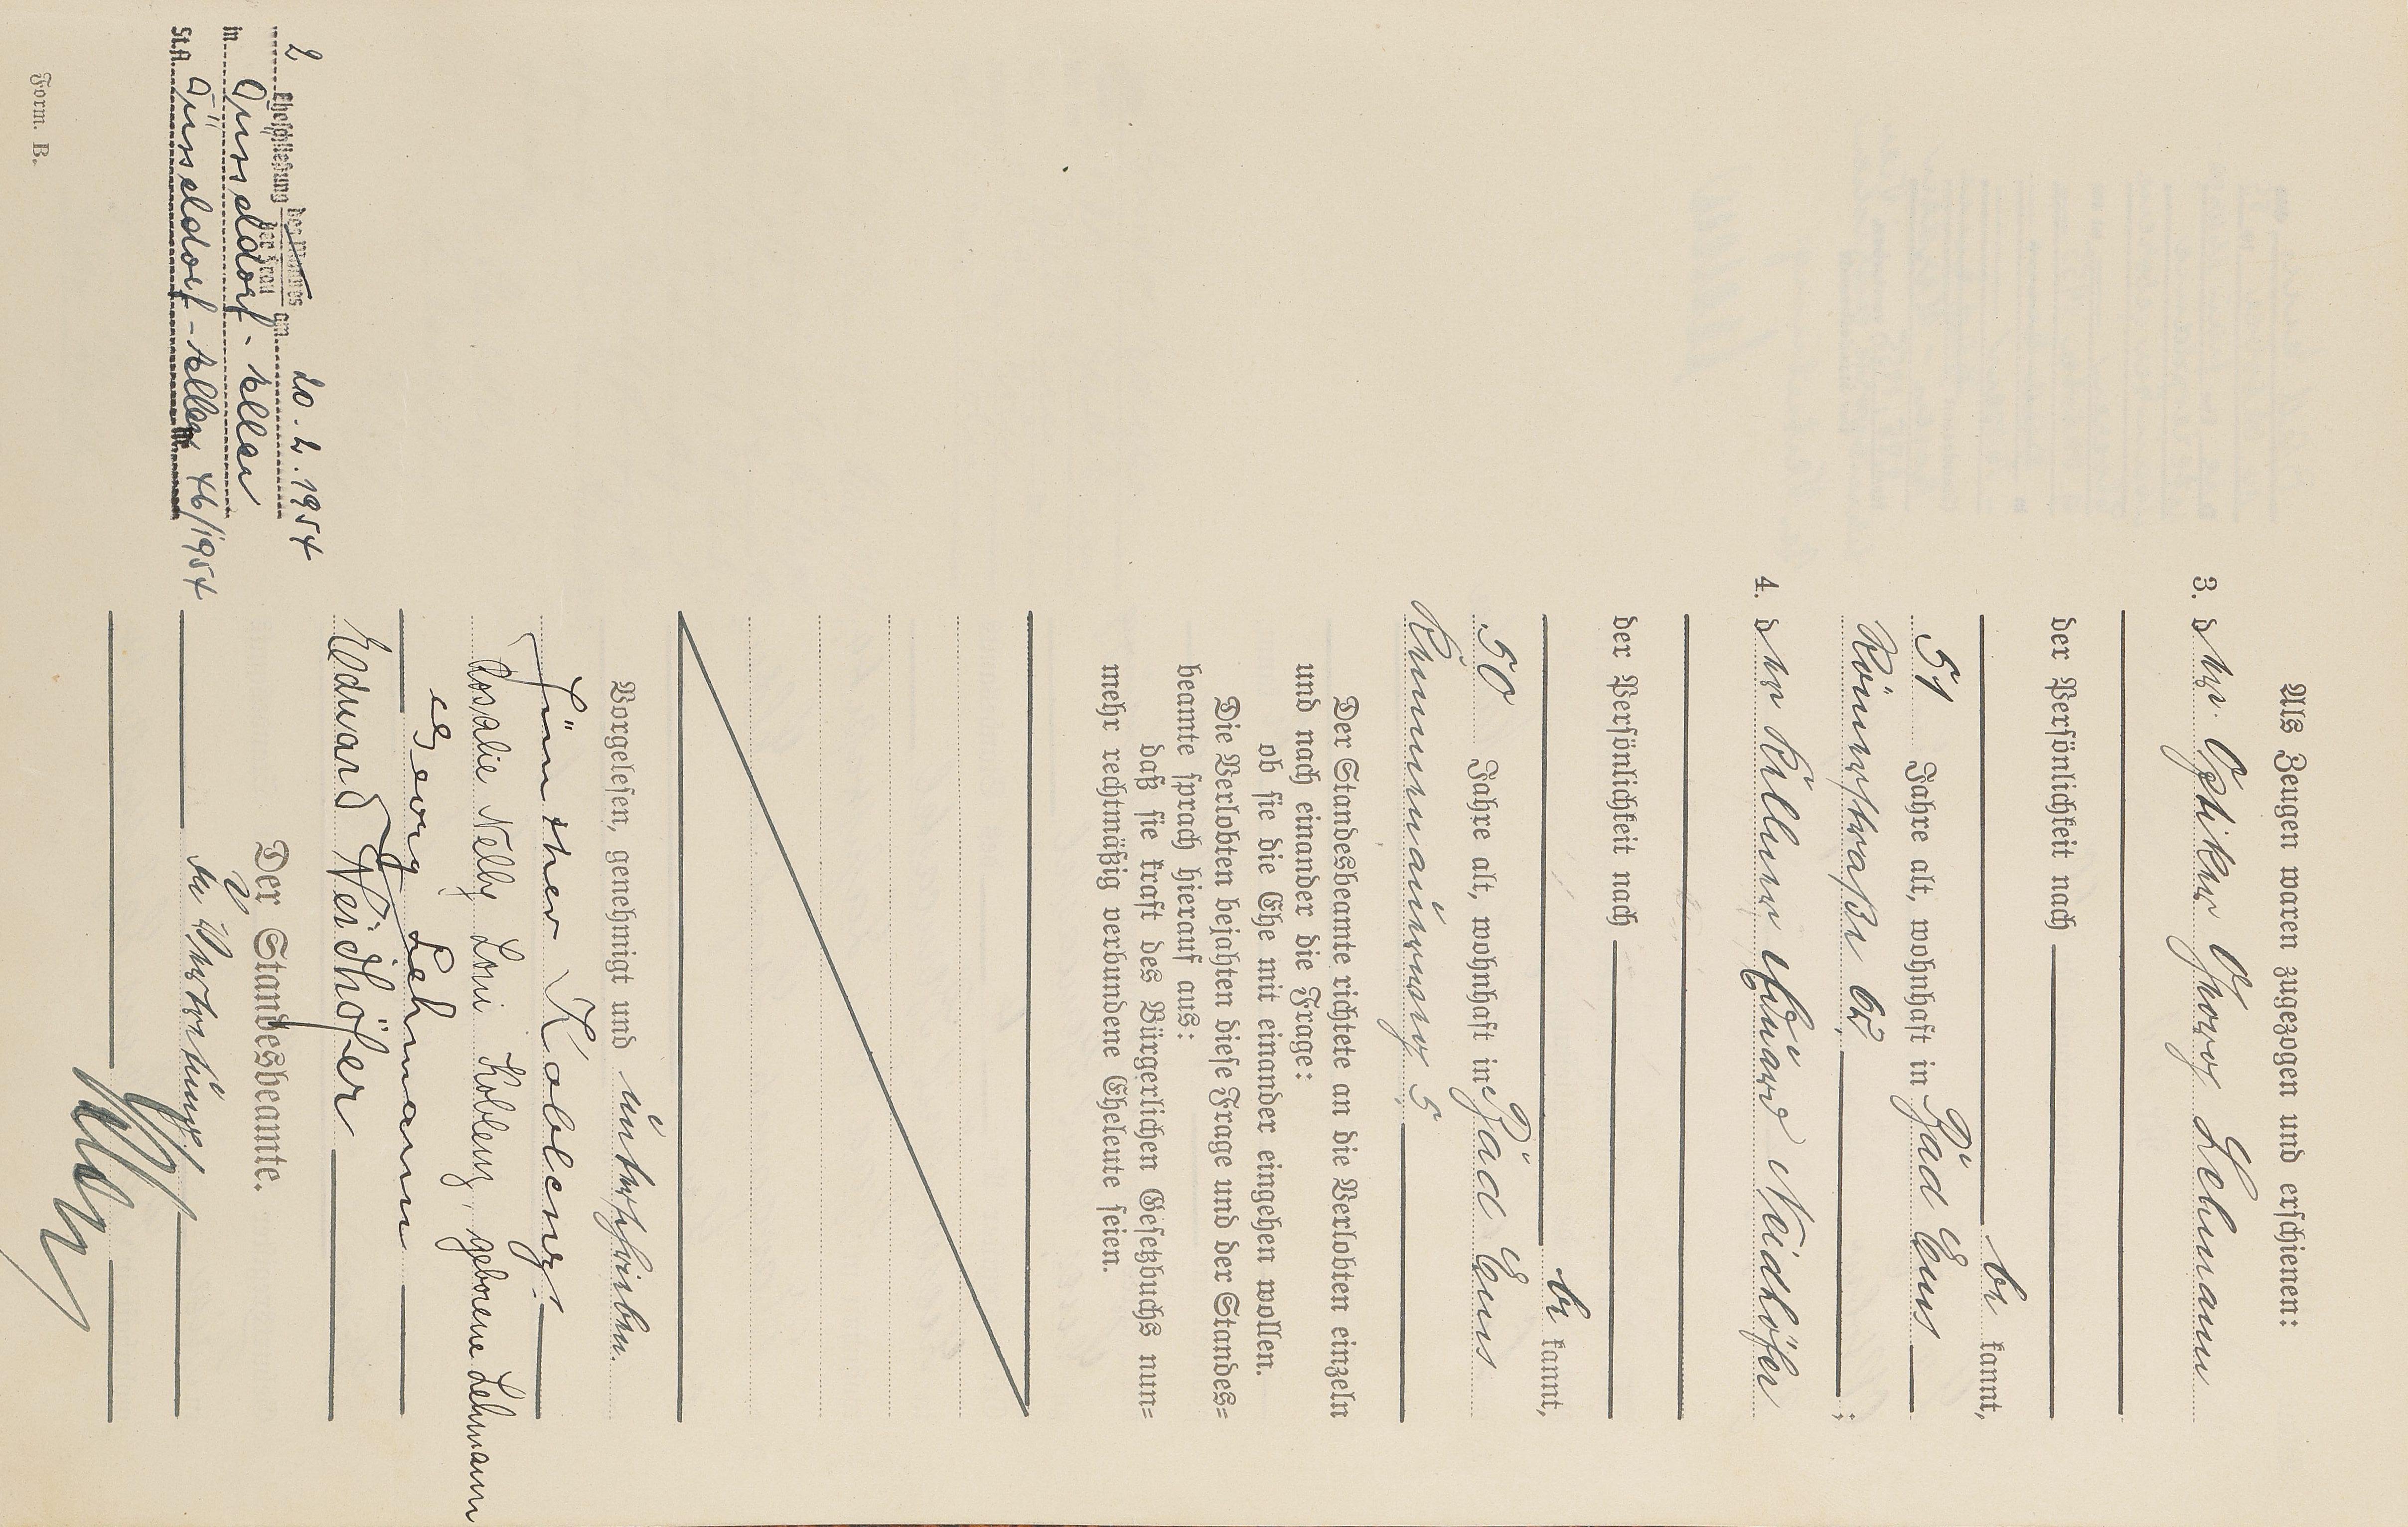 Als Zeugen waren zugezogen und erschienen:
3. der Optiker Georg Lehmann
der Persönlichkeit nach
be kannt,
51 Jahre alt, wohnhaft in Bad Ems
Römerstraße 62 ;
4. der Kellner Eduard Neidhöfer
der Persönlichkeit nach
be kannt,
50 Jahre alt, wohnhaft in Bad Ems
5.
Der Standesbeamte richtete an die Verlobten einzeln
und nach einander die Frage:
ob sie die Ehe mit einander eingehen wollen.
Die Verlobten bejahten diese Frage und der Standes=
beamte sprach hierauf aus:
daß sie kraft des Bürgerlichen Gesetzbuchs nun=
mehr rechtmäßig verbundene Eheleute seien.
Vorgelesen, genehmigt und unterschrieben.
Günther Koblenz.
Rosalie Nelly Loni Koblenz, geborene Lehmann
Georg Lehmann
Eduard Neidhöfer
Der Standesbeamte.
In Vertretung.
2. Eheschließung des Mannes der Frau am 20.2.1954
in Düsseldorf - Eller
St.A Düsseldorf - Eller Nr. 46/1954
Form. B.